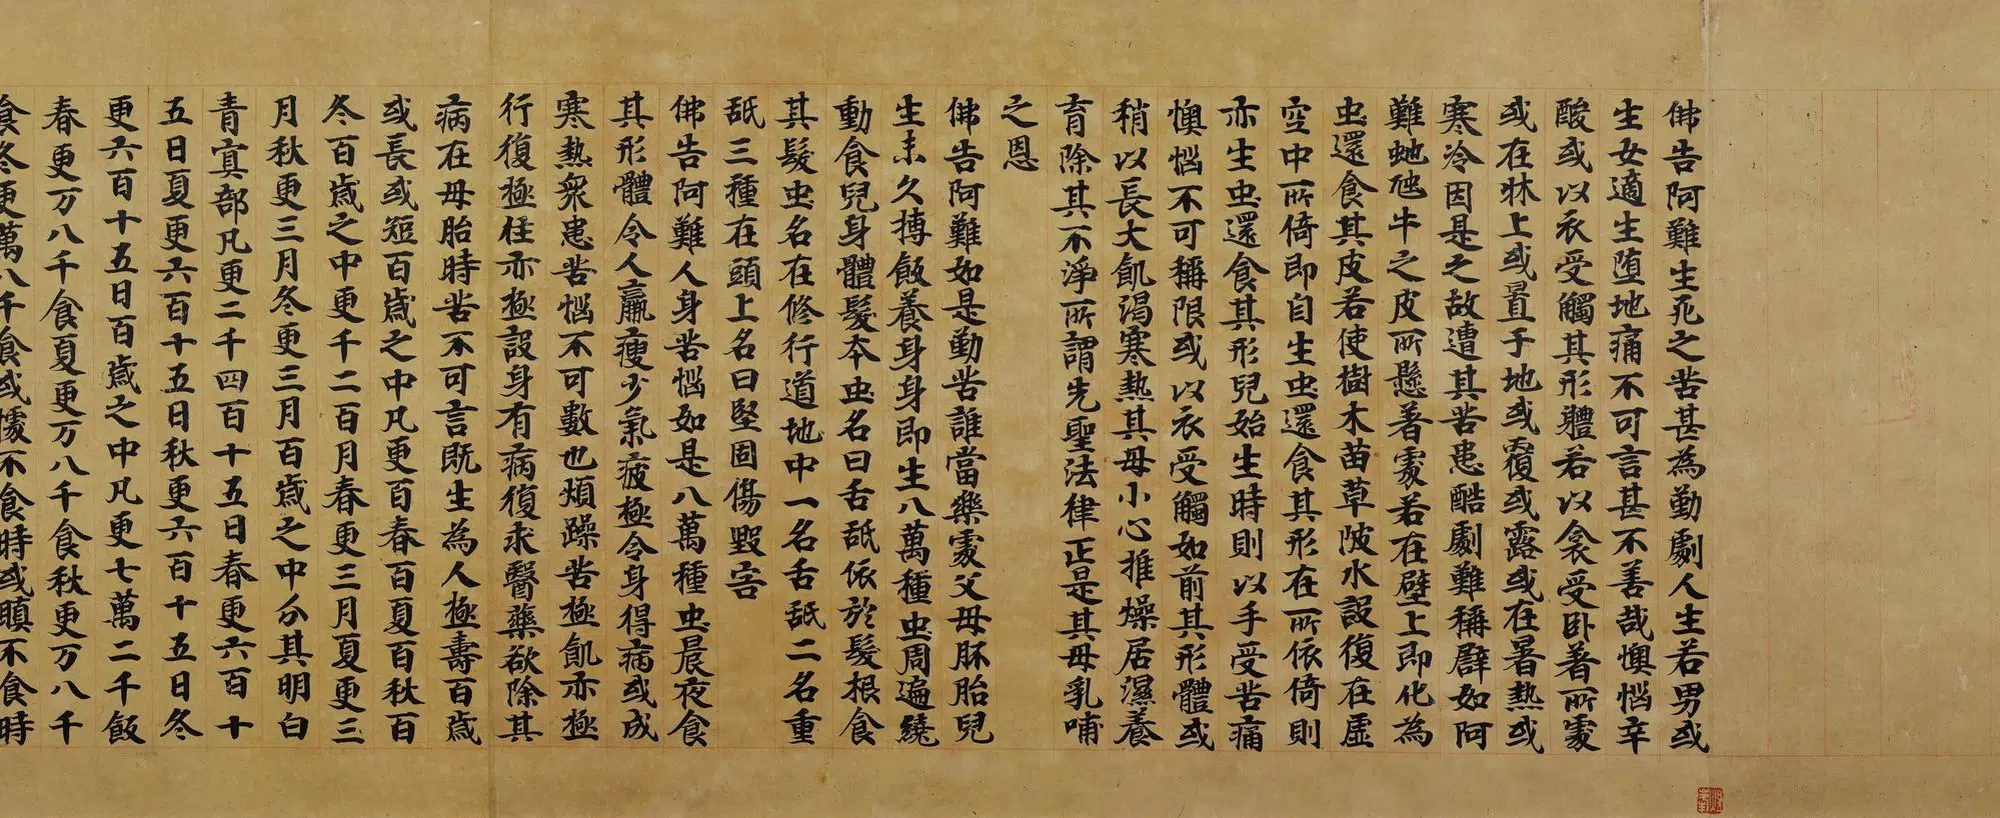 佛告阿難生死之苦甚為勤劇人生若男或
生女適生墮地痛不可言甚不善哉懊惱辛
酸或以衣受觸其形體若以衾受卧著所處
或在牀上或置于地或覆或露或在暑熱或
寒冷因是之故遭其苦患酷劇難稱辟如阿
難虵虺牛之皮所懸著處若在壁上即化為
虫還食其皮若使樹木苗草陂水設復在虛
空中所倚即自生虫還食其形在所依倚則
亦生虫還食其形兒始生時則以手受苦痛
懊惱不可稱限或以衣受觸如前其形體或
稍以長大飢渴寒熱其母小心推燥居濕養
育除其不淨所謂先聖法律正是其母乳哺
之恩
佛告阿難如是勤苦誰當樂處父母胚胎兒
生未久摶飯養身身即生八萬種虫周遍繞
動食兒身體髮本虫名曰舌舐依於髮根食
其髮虫名在修行道地中一名舌舐二名重
舐三種在頭上名曰堅固傷毀害
佛告阿難人身苦惱如是八萬種虫晨夜食
其形體令人羸瘦少氣疲極令身得病或成
寒熱眾患苦惱不可數也煩躁苦極飢亦極
行復極住亦極設身有病復求醫藥欲除其
病在母胎時苦不可言既生為人極壽百歲
或長或短百歲之中凡更百春百夏百秋百
冬百歲之中更千二百月春更三月夏更三
月秋更三月冬更三月百歲之中分其明白
青冥部凡更二千四百十五日春更六百十
五日夏更六百十五日秋更六百十五日冬
更六百十五日百歲之中凡更七萬二千飯
春更万八千食夏更万八千食秋更万八千
食冬更萬八千食或懅不食時或瞋不食時